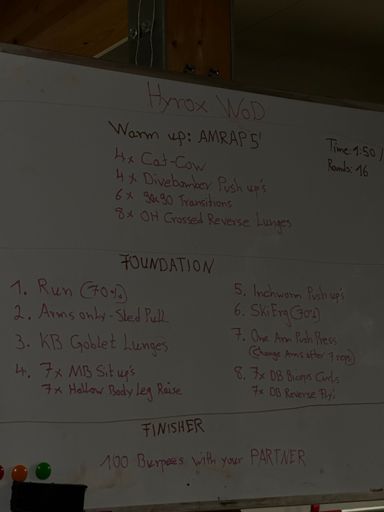 Hyrox WoD
Warm up: AMRAP 5'
Time 1:50 /
Rounds: 16
4x Cat-Cow
4x Divebomber Push up's
6x 90x90 Transitions
8x OH Crossed Reverse Lunges
FOUNDATION
1. Run (70%)
2. Arms only - Sled Pull
3. KB Goblet Lunges
4. 7x MB Sit up's
7x Hollow Body Leg Raise
5. Inchworm Push up's
6. SkiErg (70%)
7. One Arm Push Press
(Change Arms after 7 reps)
8. 7x DB Biceps Curls
7x DB Reverse Fly
FINISHER
100 Burpees with your PARTNER